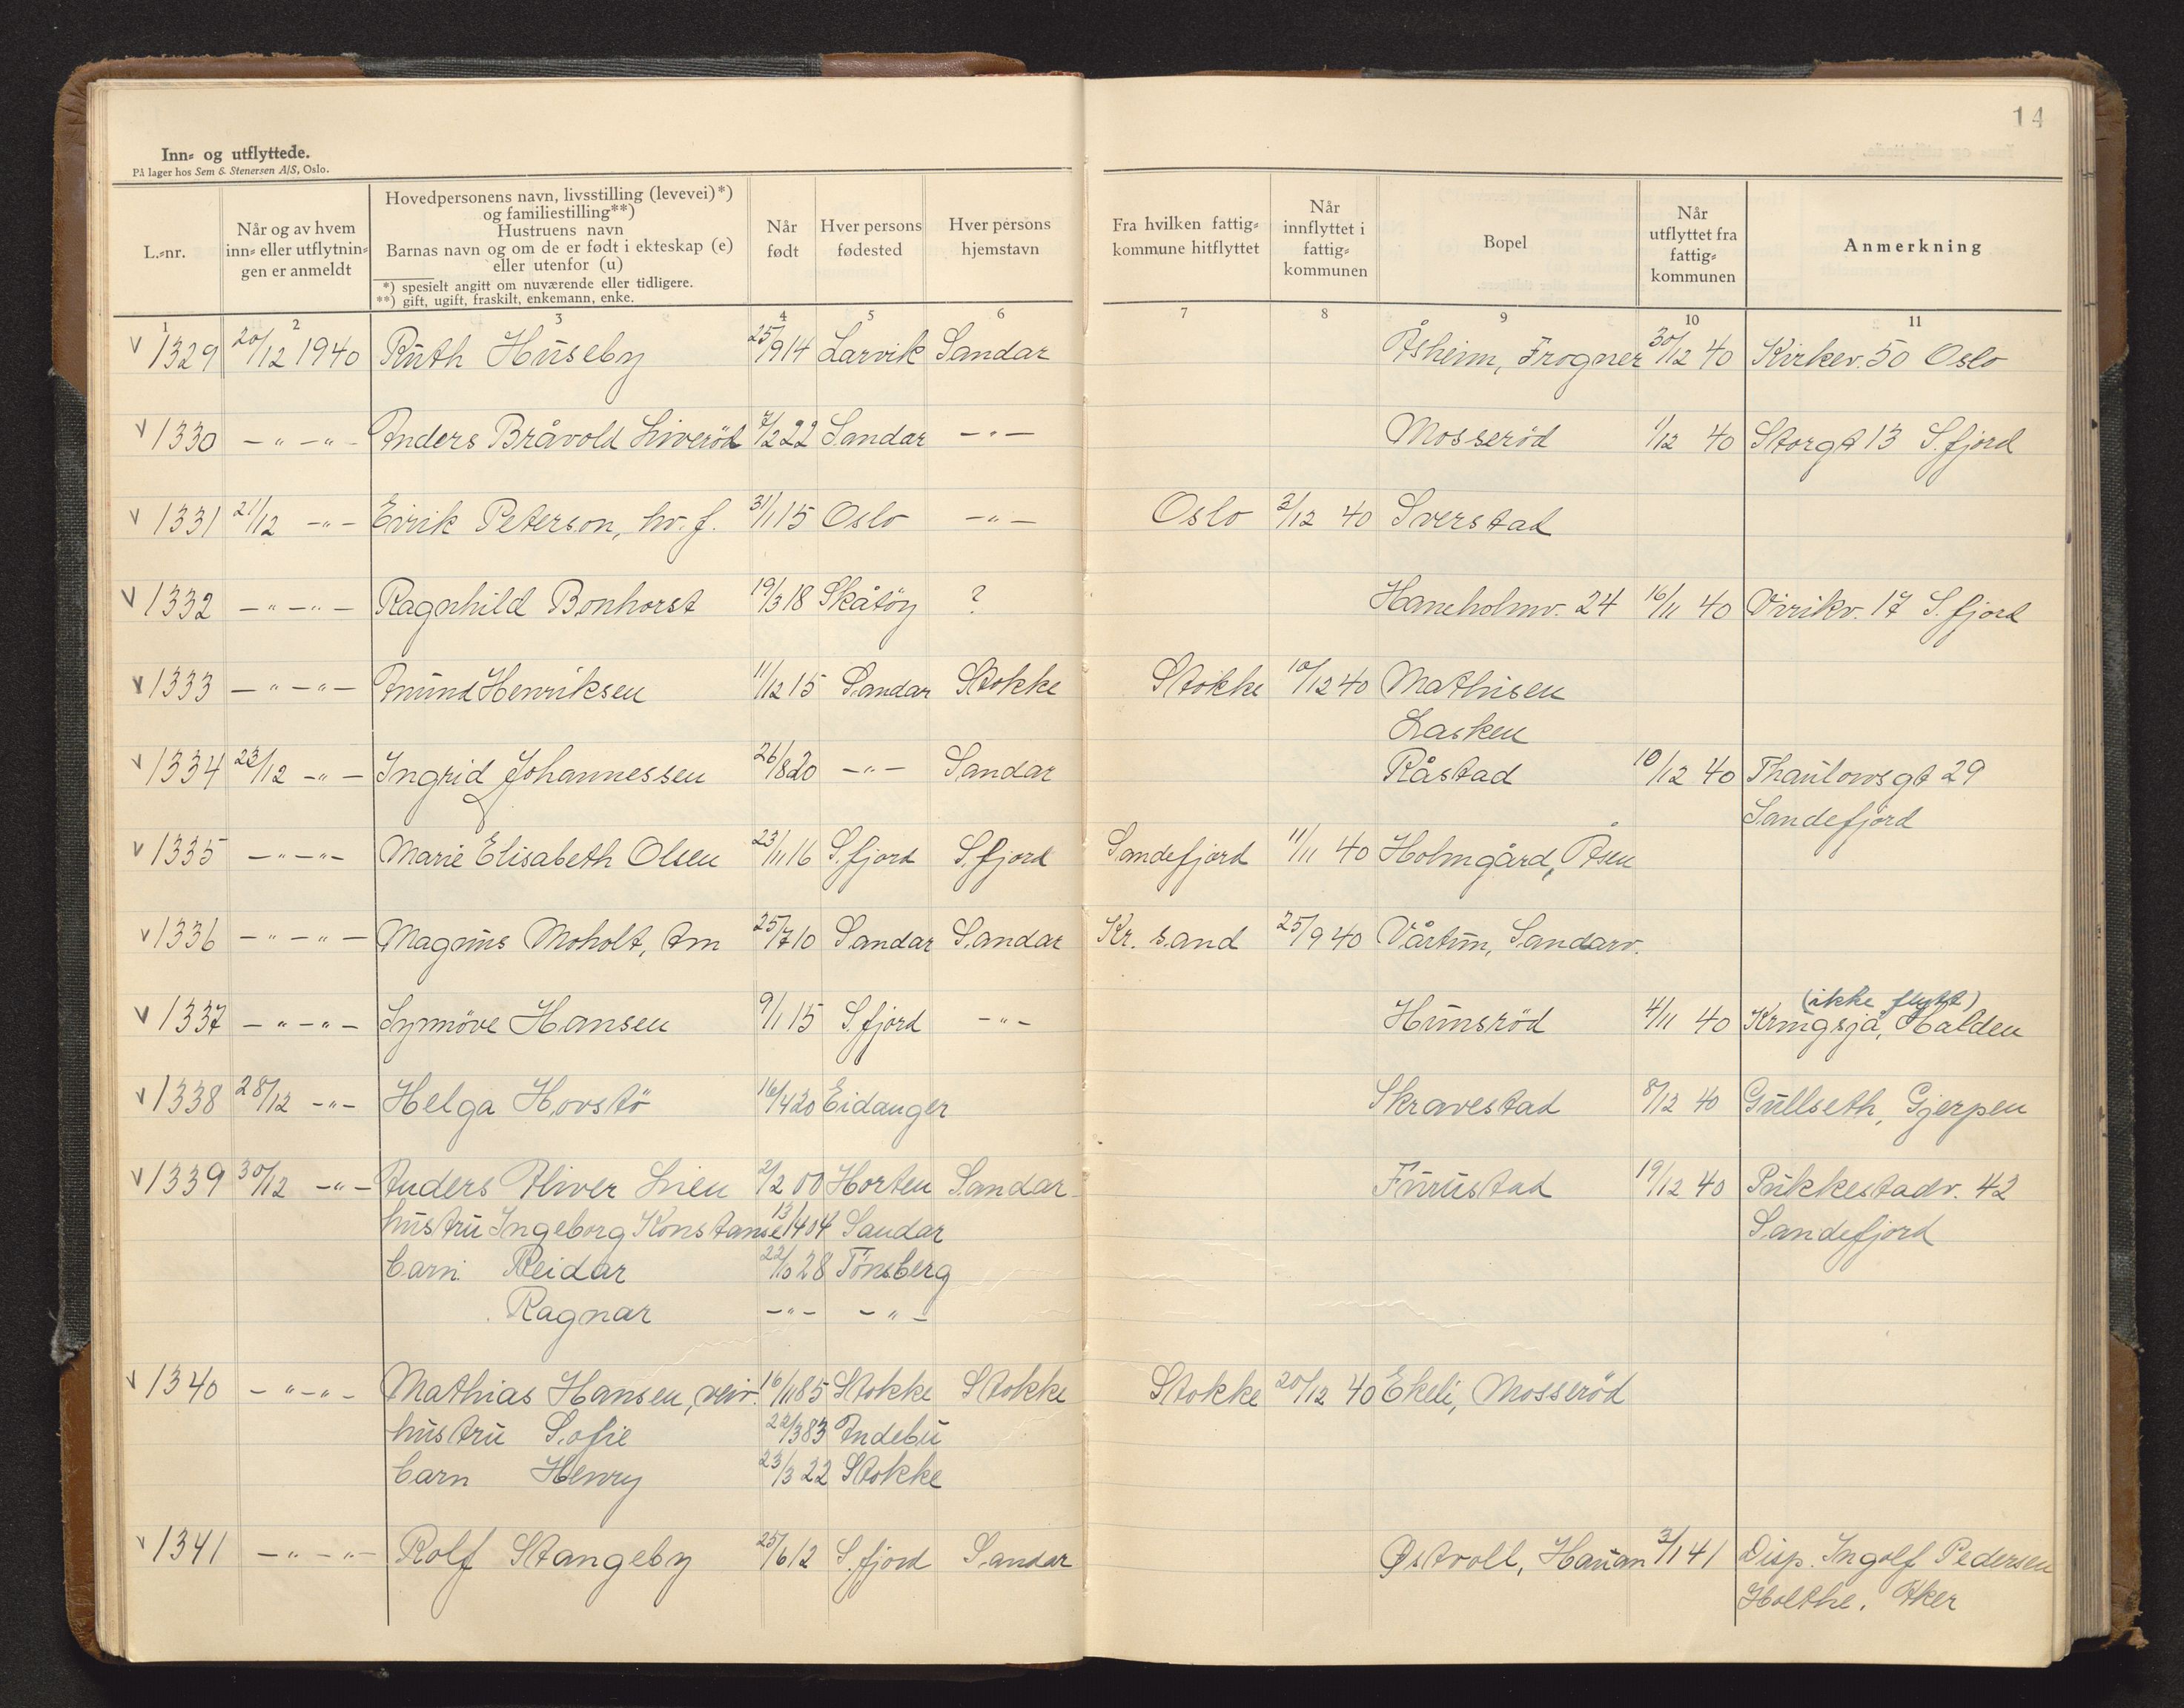 14
Inn- og utflyttede.
På lager hos Sem & Stenersen A/S, Oslo.
L.-nr.
Når og av hvem inn- eller utflytnin- gen er anmeldt
Hovedpersonens navn, livsstilling (levevei)*)
og familiestilling**)
Hustruens navn
Barnas navn og om de er født i ekteskap (e)
eller utenfor (u)
*) spesielt angitt om nuværende eller tidligere.
**) gift, ugift, fraskilt, enkemann, enke.
Når født
Hver persons fødested
Hver persons hjemstavn
Fra hvilken fattig- kommune hitflyttet
Når innflyttet i fattig- kommunen
Bopel
Når utflyttet fra fattig- kommunen
Anmerkning
1 2 3 4 5 6 7 8 9 10 11
V 1329 20/12 1940 Ruth Huseby 25/9 14 Larvik Sandar Åsheim, Frogner 30/12 40 Kirkev. 50 Oslo
V 1330 -"- -"- Anders Bråvold Liverød 7/2 22 Sandar -"- Mosserød 1/12 40 Storgt 13 S.fjord
V 1331 21/12 -"- Eirik Peterson, hv.f. 31/1 15 Oslo -"- Oslo 2/12 40 Sverstad
V 1332 -"- -"- Ragnhild Bonhorst 19/3 18 Skåtöy ? Haneholmv. 24 16/11 40 Virikv. 17 S.fjord
V 1333 -"- -"- Amund Henriksen 11/12 15 Sandar Stokke Stokke 10/12 40 Mathisen
Lasken
V 1334 23/12 -"- Ingrid Johannessen 26/8 20 -"- Sandar Råstad 10/12 40 Thaulowsgt 29
Sandefjord
V 1335 -"- -"- Marie Elisabeth Olsen 23/11 16 S.fjord S.fjord Sandefjord 11/11 40 Holmgård, Åsen
V 1336 -"- -"- Magnus Moholt, tm 25/7 10 Sandar Sandar Kr. sand 25/9 40 Vårtun, Sandarv.
(ikke flytt)
V 1337 -"- -"- Synnöve Hansen 9/1 15 S.fjord -"- Hunsröd 4/11 40 Kringsjå, Halden
V 1338 28/12 -"- Helga Hovstö 16/4 20 Eidanger Skravestad 8/12 40 Gullseth, Gjerpen
V 1339 30/12 -"- Anders Oliver Lien 2/2 00 Horten Sandar Furustad 19/12 40 Pukkestadv. 42
hustru Ingeborg Konstanse 13/4 04 Sandar Sandefjord
barn Reidar 22/10 28 Tönsberg
Ragnar -"- -"-
V 1340 -"- -"- Mathias Hansen, veiv. 16/11 85 Stokke Stokke Stokke 20/12 40 Ekeli, Mosseröd
hustru Sofie 22/3 83 Andebu
barn Henry 23/3 22 Stokke
V 1341 -"- -"- Rolf Stangeby 25/6 12 S.fjord Sandar Østvoll, Hauan 3/1 41 Disp. Ingolf Pedersen
Holthe. Aker